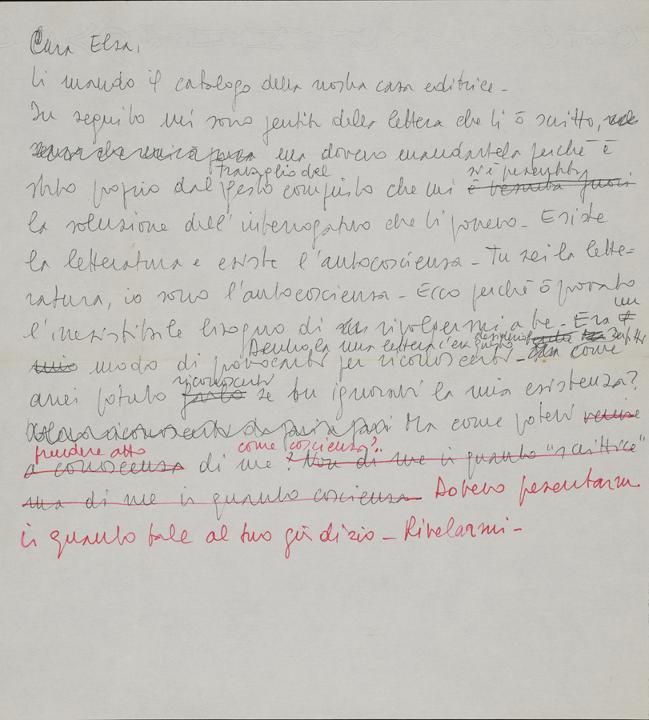 Cara Elsa,
ti mando il catalogo della nostra casa editrice -
In seguito mi sono pentita della lettera che ti ō scritto,
ma dovevo mandartela perchē ē
travaglio del si ē presentata
stato proprio dal gesto compiuto che mi ē venuta fuori
la soluzione dell'interrogativo che ti ponevo - Esiste
la letteratura e esiste l'autocoscienza - Tu sei la lette-
ratura, io sono l'autocoscienza - Ecco perchē ō provato
un
l'irresistibile bisogno di rivolgermi a te - Era
Dentro la mia lettera c'era
mio modo di provocarti per riconoscerti - come
riconoscerti
avrei potuto farlo se tu ignoravi la mia esistenza?
Ma come potevi venire
prendere atto come coscienza?..
a conoscenza di me? Non di me in quanto "scrittrice"
ma di me in quanto coscienza - Dovevo presentarmi
in quanto tale al tuo giudizio - Rivelarmi -